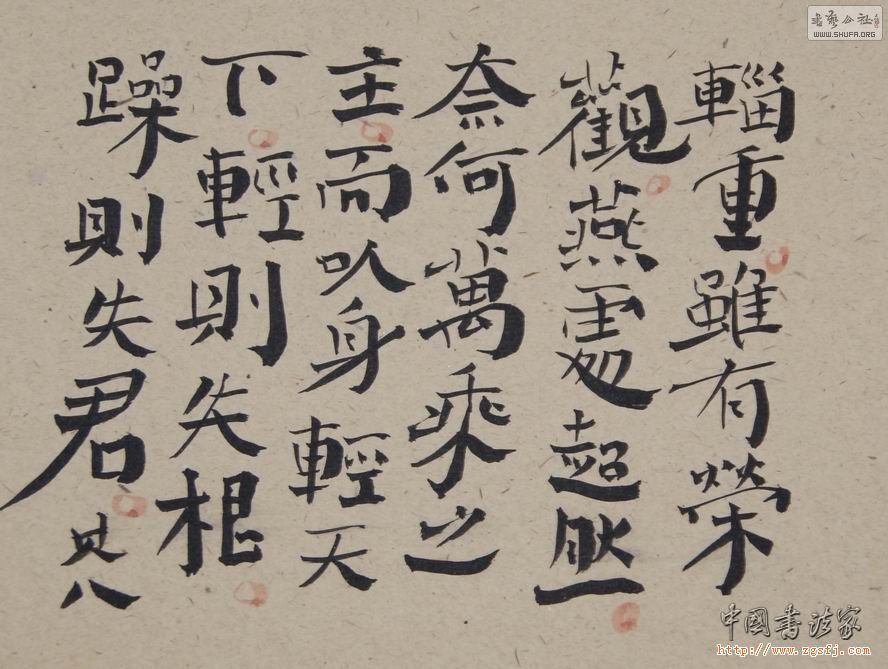 輜重雖有榮
觀燕處超然
奈何萬乘之
主而以身輕天
下輕則失根
躁則失君 八
WWW.SHUFA.ORG
中國书法家
http://www.zgsfj.com